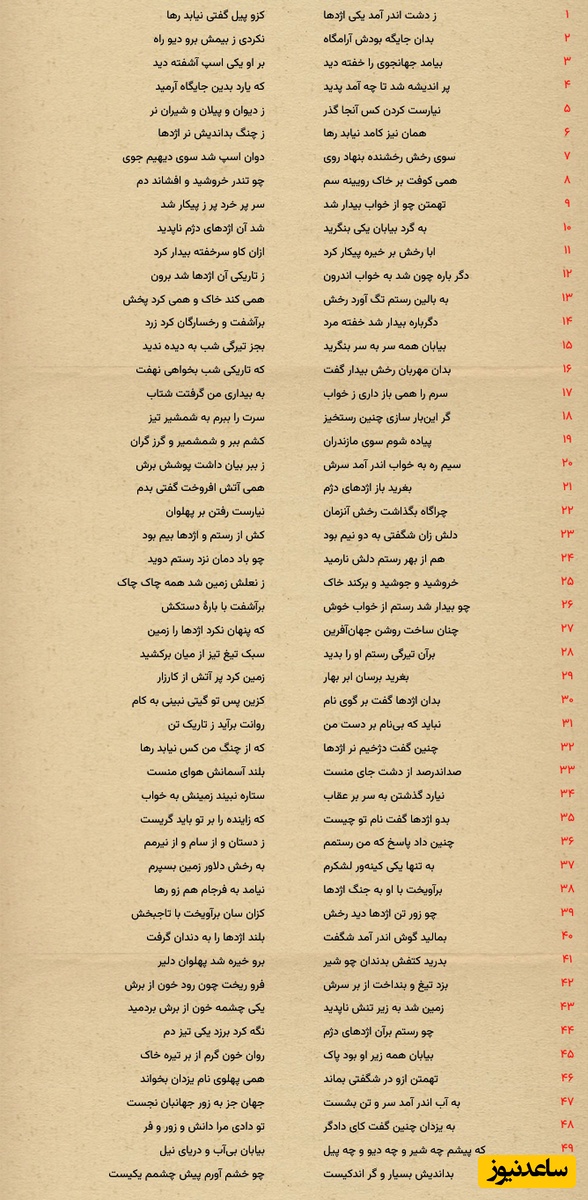 ۱ ز دشت اندر آمد یکی اژدها کزو پیل گفتی نیابد رها
۲ بدان جایگه بودش آرامگاه نکردی ز بیمش برو دیو راه
۳ بیامد جهانجوی را خفته دید بر او یکی اسپ آشفته دید
۴ پر اندیشه شد تا چه آمد پدید که یارد بدین جایگاه آرمید
۵ نیارست کردن کس آنجا گذر ز دیوان و پیلان و شیران نر
۶ همان نیز کامد نیابد رها ز چنگ بداندیش نر اژدها
۷ سوی رخش رخشنده بنهاد روی دوان اسپ شد سوی دیهیم جوی
۸ همی کوفت بر خاک رویینه سم چو تندر خروشید و افشاند دم
۹ تهمتن چو از خواب بیدار شد سر پر خرد پر ز پیکار شد
۱۰ به گرد بیابان یکی بنگرید شد آن اژدهای دژم ناپدید
۱۱ ابا رخش بر خیره پیکار کرد ازان کاو سرخفته بیدار کرد
۱۲ دگر باره چون شد به خواب اندرون ز تاریکی آن اژدها شد برون
۱۳ به بالین رستم تگ آورد رخش همی کند خاک و همی کرد پخش
۱۴ دگرباره بیدار شد خفته مرد برآشفت و رخسارگان کرد زرد
۱۵ بیابان همه سر به سر بنگرید بجز تیرگی شب به دیده ندید
۱۶ بدان مهربان رخش بیدار گفت که تاریکی شب بخواهی نهفت
۱۷ سرم را همی باز داری ز خواب به بیداری من گرفتت شتاب
۱۸ گر این‌بار سازی چنین رستخیز سرت را ببرم به شمشیر تیز
۱۹ پیاده شوم سوی مازندران کشم ببر و شمشمیر و گرز گران
۲۰ سیم ره به خواب اندر آمد سرش ز ببر بیان داشت پوشش برش
۲۱ بغرید باز اژدهای دژم همی آتش افروخت گفتی بدم
۲۲ چراگاه بگذاشت رخش آنزمان نیارست رفتن بر پهلوان
۲۳ دلش زان شگفتی به دو نیم بود کش از رستم و اژدها بیم بود
۲۴ هم از بهر رستم دلش نارمید چو باد دمان نزد رستم دوید
۲۵ خروشید و جوشید و برکند خاک ز نعلش زمین شد همه چاک چاک
۲۶ چو بیدار شد رستم از خواب خوش برآشفت با بارهٔ دستکش
۲۷ چنان ساخت روشن جهان‌آفرین که پنهان نکرد اژدها را زمین
۲۸ برآن تیرگی رستم او را بدید سبک تیغ تیز از میان برکشید
۲۹ بغرید برسان ابر بهار زمین کرد پر آتش از کارزار
۳۰ بدان اژدها گفت بر گوی نام کزین پس تو گیتی نبینی به کام
۳۱ نباید که بی‌نام بر دست من روانت برآید ز تاریک تن
۳۲ چنین گفت دژخیم نر اژدها که از چنگ من کس نیابد رها
۳۳ صداندرصد از دشت جای منست بلند آسمانش هوای منست
۳۴ نیارد گذشتن به سر بر عقاب ستاره نبیند زمینش به خواب
۳۵ بدو اژدها گفت نام تو چیست که زاینده را بر تو باید گریست
۳۶ چنین داد پاسخ که من رستمم ز دستان و از سام و از نیرمم
۳۷ به تنها یکی کینه‌ور لشکرم به رخش دلاور زمین بسپرم
۳۸ برآویخت با او به جنگ اژدها نیامد به فرجام هم زو رها
۳۹ چو زور تن اژدها دید رخش کزان سان برآویخت با تاجبخش
۴۰ بمالید گوش اندر آمد شگفت بلند اژدها را به دندان گرفت
۴۱ بدرید کتفش بدندان چو شیر برو خیره شد پهلوان دلیر
۴۲ بزد تیغ و بنداخت از بر سرش فرو ریخت چون رود خون از برش
۴۳ زمین شد به زیر تنش ناپدید یکی چشمه خون از برش بردمید
۴۴ چو رستم برآن اژدهای دژم نگه کرد برزد یکی تیز دم
۴۵ بیابان همه زیر او بود پاک روان خون گرم از بر تیره خاک
۴۶ تهمتن ازو در شگفتی بماند همی پهلوی نام یزدان بخواند
۴۷ به آب اندر آمد سر و تن بشست جهان جز به زور جهانبان نجست
۴۸ به یزدان چنین گفت کای دادگر تو دادی مرا دانش و زور و فر
۴۹ که پیشم چه شیر و چه دیو و چه پیل بیابان بی‌آب و دریای نیل
بداندیش بسیار و گر اندکیست چو خشم آورم پیش چشمم یکیست
ساعدنیوز